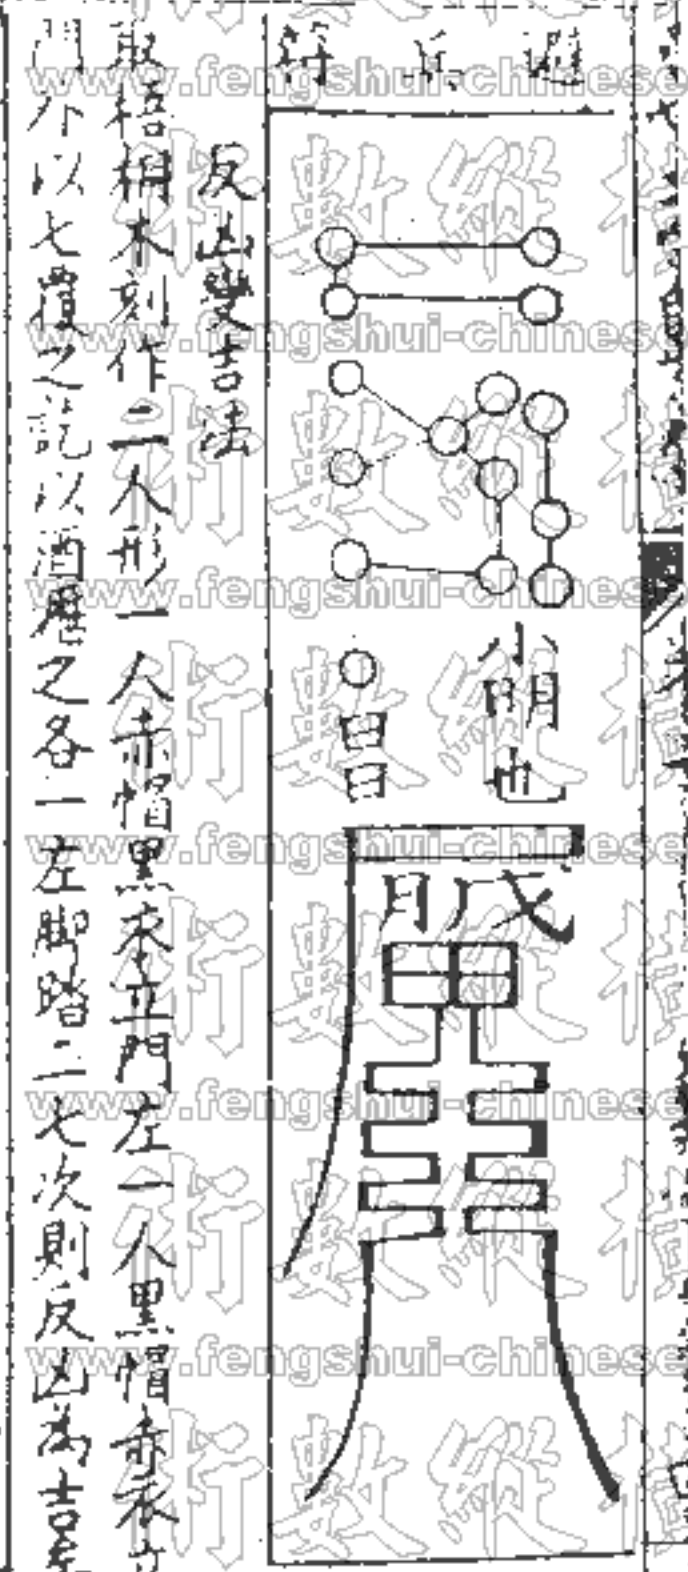 避兵符
小明也
反凶變吉法
取梧桐木刻作二人形一人赤帽黑衣立門左一人黑帽赤衣立
門外以七覆之訖以酒之各一左脚踏二七次則反凶為吉
www.fengshui-chinese
術數縱橫